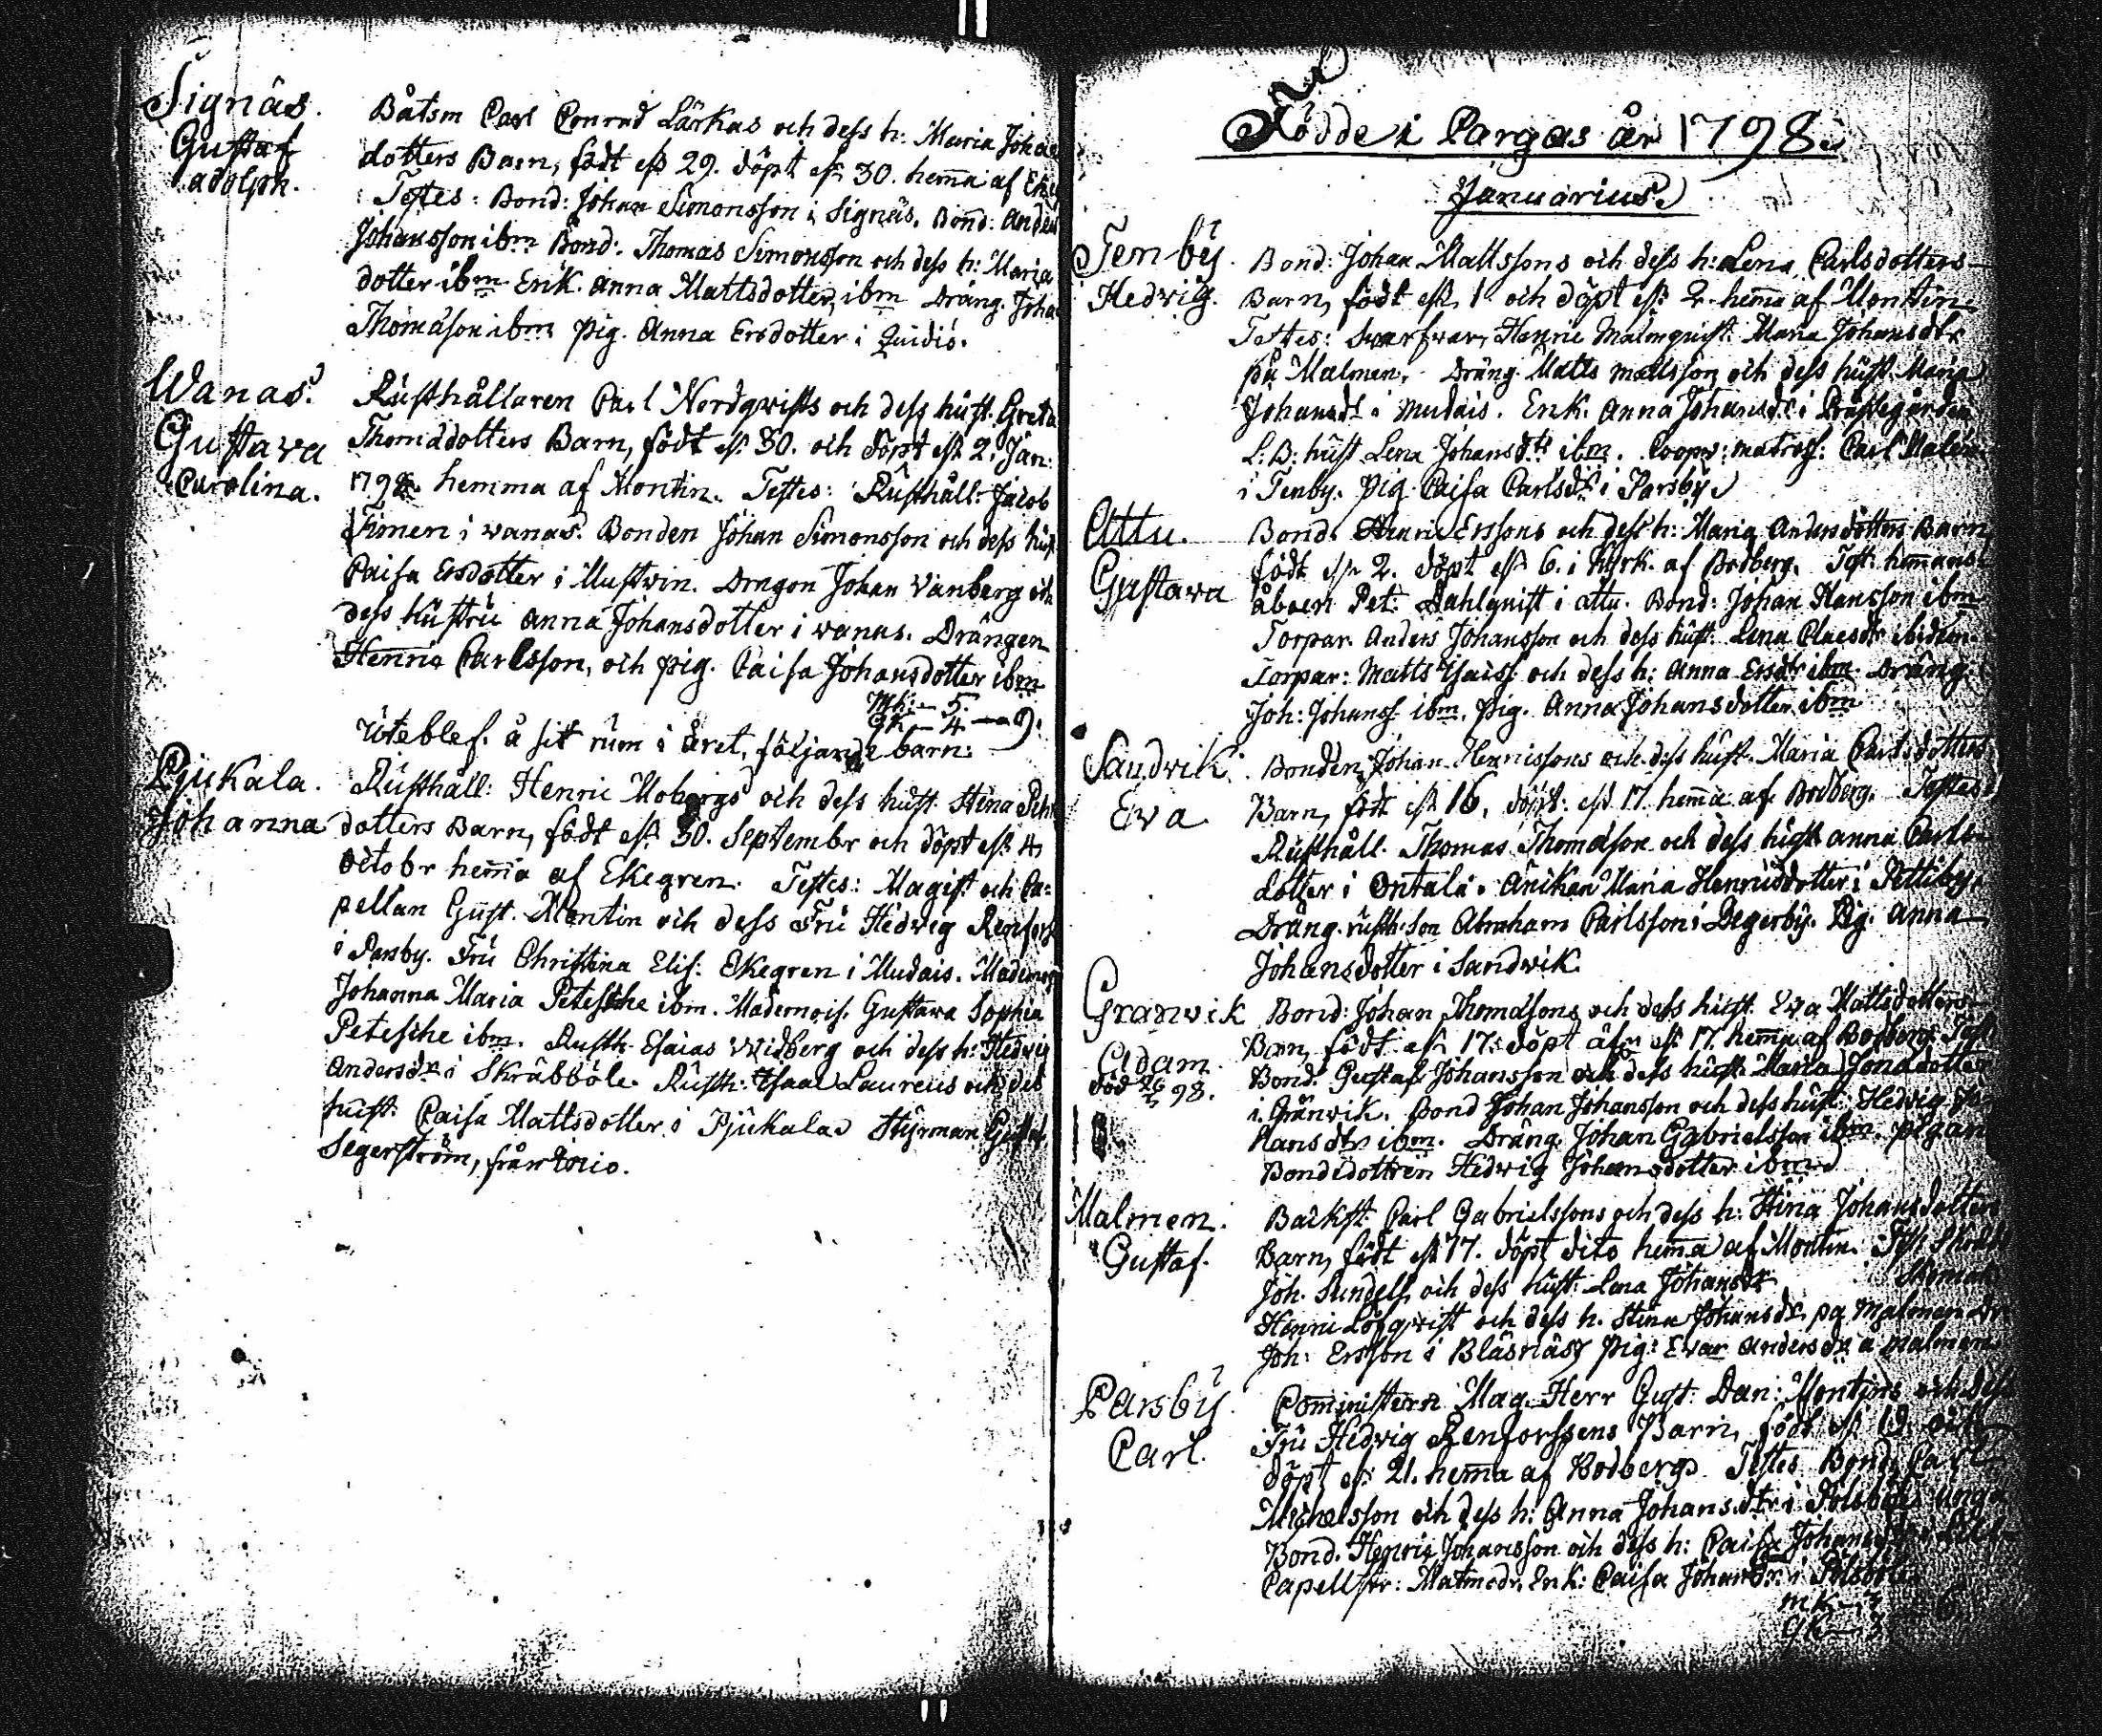 Signäs.
Gustaf
adolph.
Båtsm Carl Conrad Lärkas och dess h: Maria Johans
dotters Barn, födt ess 29. döpt ess 30. hemma af Ekeg
Testes: Bond: Johan Simonsson i Signäs. Bond: Anders
Johansson ibm Bond: Thomas Simonsson och dess h: Maria
dotter ibm Enk. Anna Mattsdotter, ibm Dräng. Joha
Thomasson ibm pig. Anna Ersdotter i Qvidiö.
Wanas.
Gustava
Carolina.
Rusthållaren Carl Nordqwists och dess hust. Greta
Thomasdotters Barn, födt ess. 30. och döpt ess 2. Jan:
1798. hemma af Montin. Testes: Rusthåll: Jacob
Simen i wanas. Bonden Johan Simonsson och dess hust
Caisa Ersdotter i Mustwin. Dragon Johan Vanberg och
dess hustru Anna Johansdotter i wanas. Drängen
Henric Carlsson, och pig. Caisa Johansdotter ibm
Mk: — 5.
QK — 4 — 9.
Uteblef. å sit rum i året, följande barn:
Pjukala.
Johanna
Rusthåll: Henric Mobergs och dess hust Stina Pehrs
dotters Barn, födt ess. 30. Septembr och döpt ess 4
Octobr hemma af Ekegren. Testes: Magist och Ca:
pellan Gust. Montin och dess Fru Hedvig Renfors
i Parsby. Fru Christina Elis: Ekegren i Mudais. Mademois
Johanna Maria Petesche ibm. Mademois. Gustava Sophia
Petesche ibm. Rusth Esaias Widberg och dess h: Hedvig
Andersdr i Skräbböle. Rusth: Isaac Laureus och des
hust. Caisa Mattsdotter i Pjukala Styrman Gustaf
Segerström, från
Födde i Pargas år 1798.
Januarius
Tenby.
Hedwig.
Bond: Johan Mattssons och dess h: Lena Carlsdotters
Barn, födt ess. 1. och döpt ess 2. hemma af Montin.
Testes: Swarfvar, Henric Malmqvist. Maria Johansdtr
på Malmen. Dräng Matts Mattsson och dess hust. Maria
Johansdr i Mudais. Enk. Anna Johansdr i Prästegården
L: B: hust Lena Johansdtr ibm. Coopv: matros: Carl Malén
i Tenby. Pig. Caisa Carlsdr i Parsby
Attu.
Gustava
Bond. Henric Erssons och dess h: Maria Andersdotters Barn
födt ess 2. döpt ess 6. i Kyrk. af Bodberg. Test. hemmans
åboen Pet: Dahlqvist i attu. Bond: Johan Hansson ibm
Torpar. Anders Johansson och dess hust. Lena Claesdr ibidem.
Torpar: Matts Isaiss och dess h: Anna Ersdr ibm. Dräng.
Joh: Johanss ibm. Pig. Anna Johansdotter ibm
Sandvik
Eva
Bonden Johan Henrissons och dess hust. Maria Carlsdotters
Barn, födt ess 16, döpt: ess 17. hemma af Bodberg. Testes
Rusthåll. Thomas Thomasson och dess hust anna Carls
dotter i Ontala. Änikan Maria Henrisdotter i Pettiby.
Dräng. rusth: son Abraham Carlsson i Degerby. Pig. Anna
Johansdotter i Sandvik.
Granvik
Adam.
död 98.
Bond: Johan Thomassons och dess hust. Eva Mattsdotters
Barn, födt ess 17. döpt ess 17. hemma af Bodberg. Test
Bond: Gustaf Johansson och dess hust. Maria Jonadotter
i Granvik. Bond Johan Johansson och dess hust Hedvig Jo
hansdtr ibm. Dräng. Johan Gabrielsson ibm. pigan
Bondedottren Hedvig Johansdotter ibm
Malmen.
Gustaf.
Backst. Carl Gabrielssons och dess h: Stina Johansdotters
Barn, födt ess 17. döpt dito hemma af Montin. Test
Joh. Sundell och dess hust. Lena Johansdr
Henric Löfqwist och dess h. Stina Johansdr på Malmen
Joh: Ersson i Bläsnäs Pig: Eva Andersdr å Malmen
Parsby.
Carl.
Comministern Mag. Herr Gust: Dan: Montins och dess
Fru Hedvig Renforssens Barn, födt ess 19. och
döpt ess 21. hemma af Bodberg. Testes Bond. Carl
Michelsson och dess h: Anna Johansdtr i unga
Bond. Henric Johansson och dess h: Caisa Johansdr
Capellsr: Enk: Caisa Johansdr: i
mk — 3
QK — 3